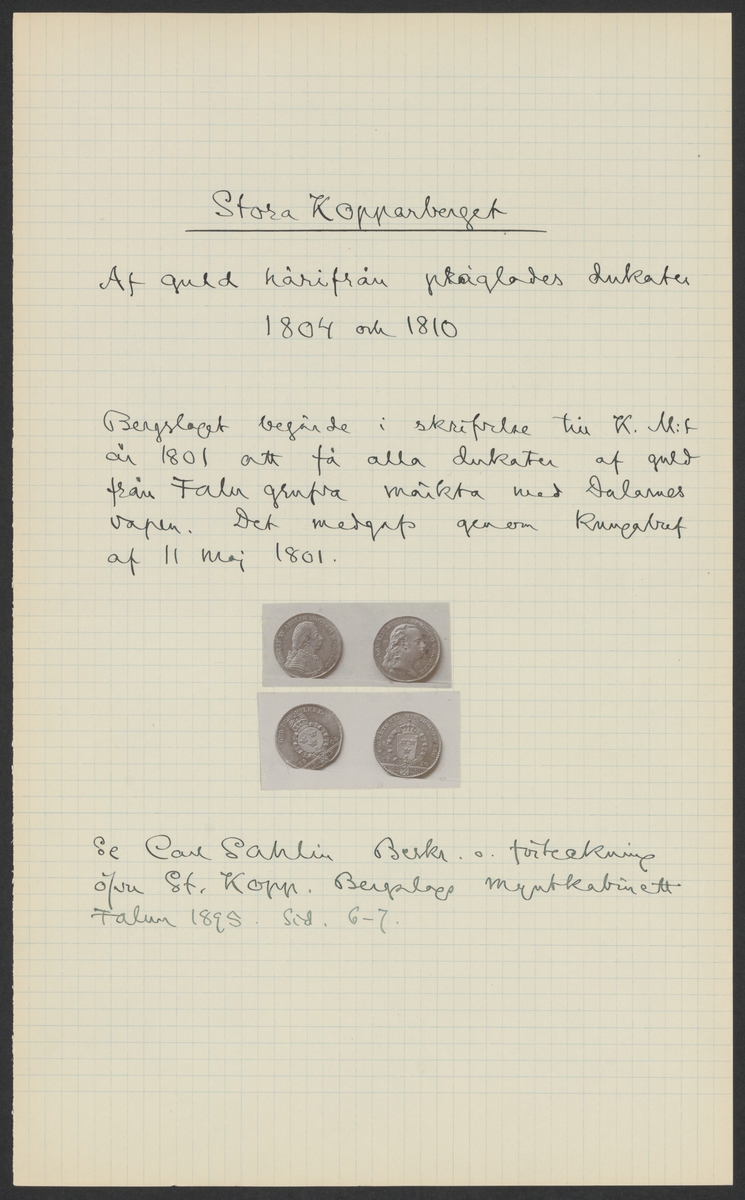 Stora Kopparberget
Af guld härifrån präglades dukater
1804 och 1810
Bergslaget begärde i skrifvelse till K. M:t
år 1801 att få alla dukater af guld
från Falu grufva märkta med Dalarnes
vapen. Det medgafs genom Kungabref
af 11 Maj 1801.
Se Carl Sahlin Beskr. o. förteckning
öfver St. Kopp. Bergslags myntkabinett
Falun 1895. Sid. 6-7.